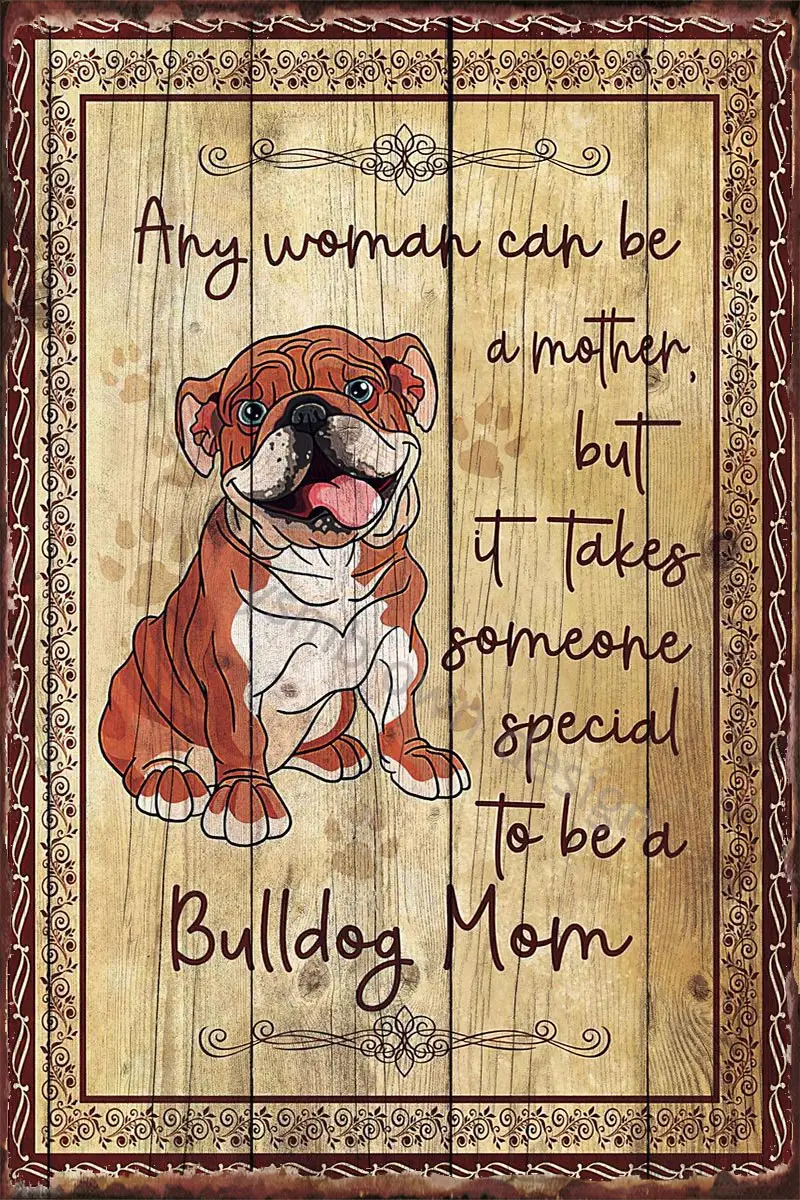 Any woman can be
a mother,
but
it takes
someone
special
to be a
Bulldog Mom